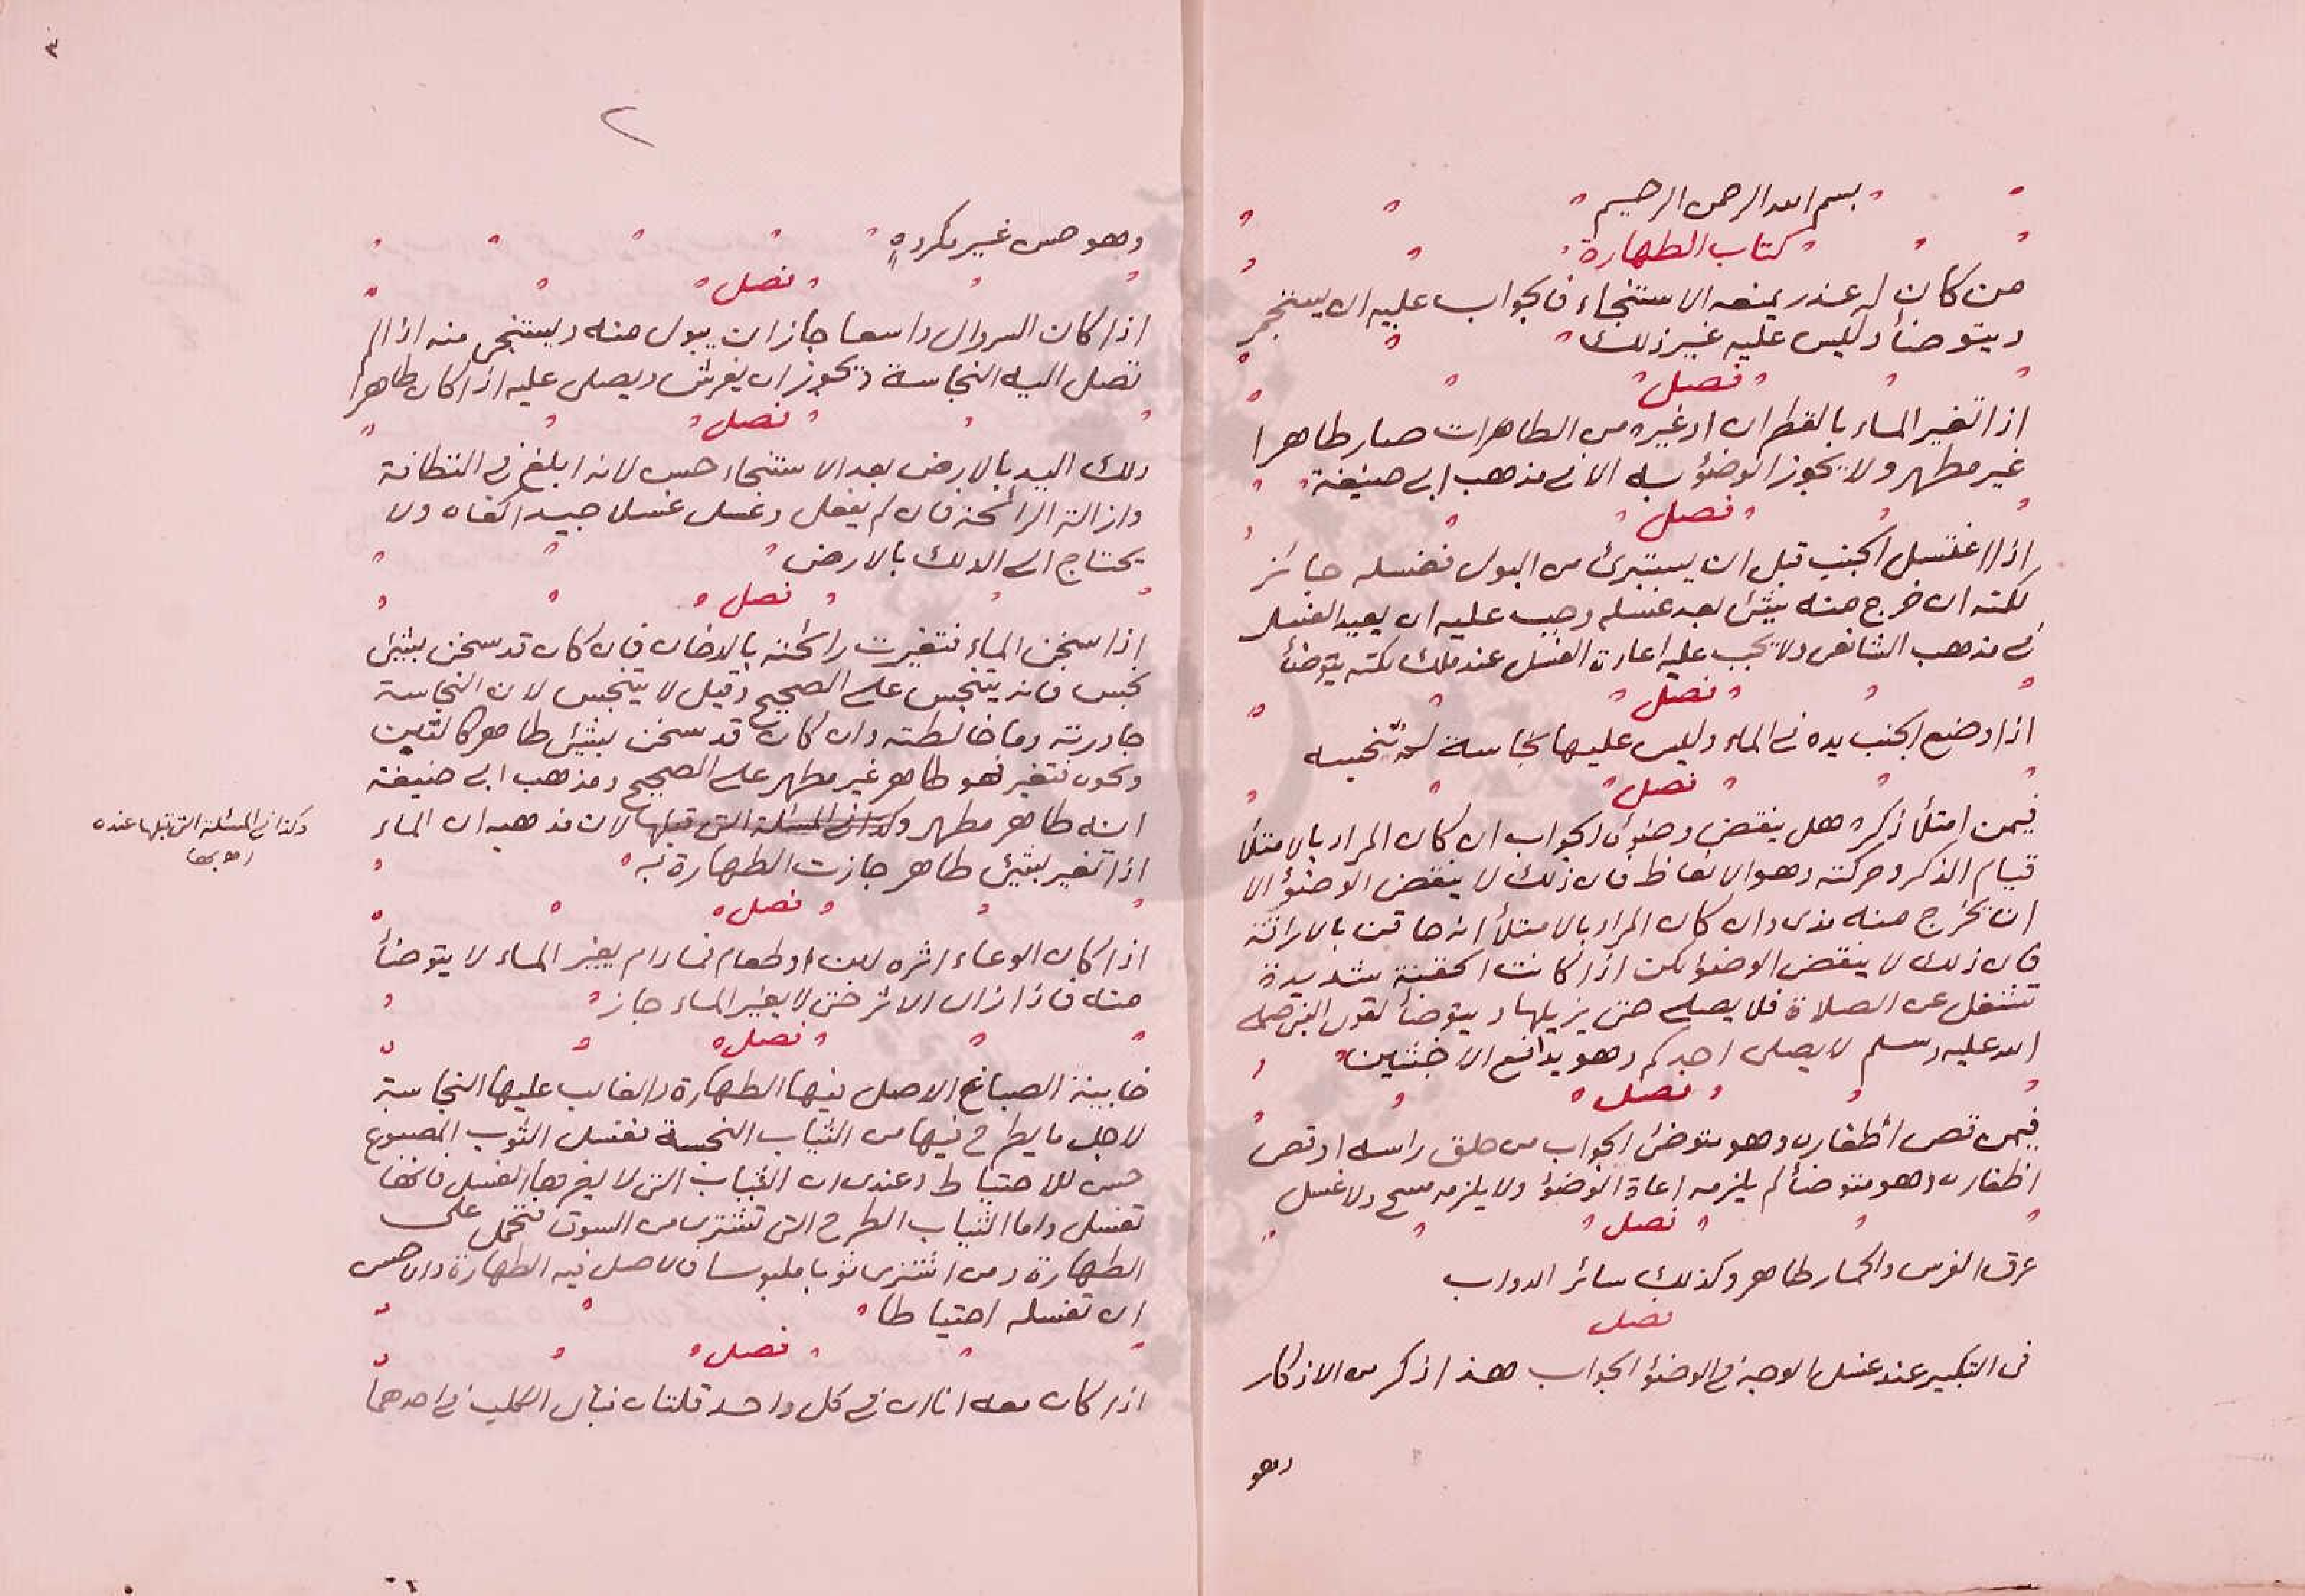 بسم الله الرحمن الرحيم
كتاب الطهارة
من كان له عذر يمنعه الاستنجاء فالجواب عليه ان يستجمر
ويتوضأ وليس عليه غير ذلك
فصل
اذا تغير الماء بالقطران او غيره من الطاهرات صار طاهرا
غير مطهر ولا يجوز الوضؤ به الا في مذهب ابي حنيفة
فصل
اذا اغتسل الجنب قبل ان يستبرئ من البول فغسله جائز
لكنه ان خرج منه شئ بعد غسله وجب عليه ان يعيد الغسل
في مذهب الشافعي ولا يجب عليه اعادة الغسل عند ملك لكنه يتوضأ
فصل
اذا وضع الجنب يده في الماء وليس عليها نجاسة لم تنجسه
فصل
فيمن امتلأ ذكره هل ينقض وضوئه الجواب ان كان المراد بالامتلأ
قيام الذكر وحركته وهو الانعاظ فان ذلك لا ينقض الوضؤ الا
ان يخرج منه مذي وان كان المراد بالامتلأ انه حاقن بالاراقة
فان ذلك لا ينقض الوضؤ لكن اذا كانت الحقنة شديدة
تشغل عن الصلاة فلا يصلي حتى يزيلها ويتوضأ لقول النبي صلى
الله عليه وسلم لا يصلى احدكم وهو يدافع الاخبثين
فصل
فيمن قص أظفاره وهو متوضئ الجواب من حلق راسه او قص
اظفاره وهو متوضأ لم يلزمه اعادة الوضؤ ولا يلزمه مسح ولا غسل
فصل
عرق الفرس والحمار طاهر وكذلك سائر الدواب
فصل
فى التكبير عند غسل الوجه في الوضؤ الجواب هذا ذكر من الاذكار
وهو
٢
وهو حسن غير مكروه
فصل
اذا كان السروال واسعا جاز ان يبول منه ويستنجي منه اذا لم
تصل اليه النجاسة ويجوز ان يفرش ويصلى عليه اذا كان طاهرا
فصل
دلك اليد بالارض بعد الاستنجاء حسن لانه ابلغ في النظافة
وازالة الرائحة فان لم يفعل وغسل غسلا جيدا كفاه ولا
يحتاج الى الدلك بالارض
فصل
اذا سخن الماء فتغيرت رائحته بالدخان فان كان قد سخن بشئ
نجس فانه يتنجس على الصحيح وقيل لا يتنجس لان النجاسة
جاورته وما خالطته وان كان قد سخن بشئ طاهر كالتبن
ونحوه فتغير فهو طاهر غير مطهر على الصحيح ومذهب ابي حنيفة
انه طاهر مطهر وكذا في المسئلة التي قبلها لان مذهبه ان الماء
وكذا في المسئلة التي قبلها عنده
اذا تغير بشئ طاهر جازت الطهارة به
فصل
اذا كان الوعاء اثره لبن او طعام فما دام يغير الماء لا يتوضأ
منه فاذا زال الاثر حتى لا يغير الماء جاز
فصل
خابية الصباغ الاصل فيها الطهارة والغالب عليها النجاسة
لاجل ما يطرح فيها من الثياب النجسة فغسل الثوب المصبوغ
حسن للاحتياط وعندى ان الثياب التى لا يضرها الغسل فانها
تغسل واما الثياب الطرح التي تشترى من السوق فتحمل على
الطهارة ومن اشترى ثوبا ملبوسا فالاصل فيه الطهارة وان حسن
ان تغسله احتياطا
فصل
اذا كان معه اناان في كل واحد قلتان فبال الكلب في احدهما